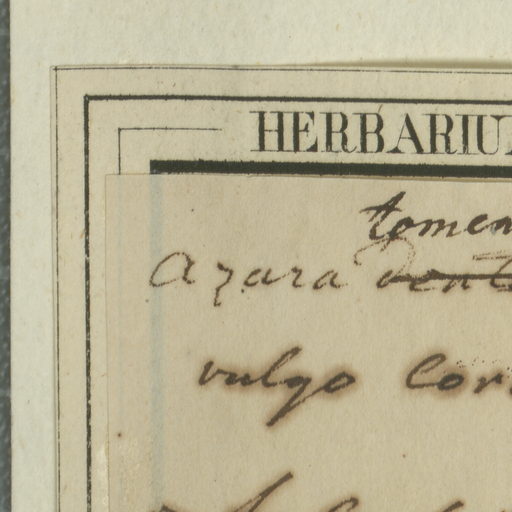 HERBARIU
tomen
Azara dent
vulgo Cor